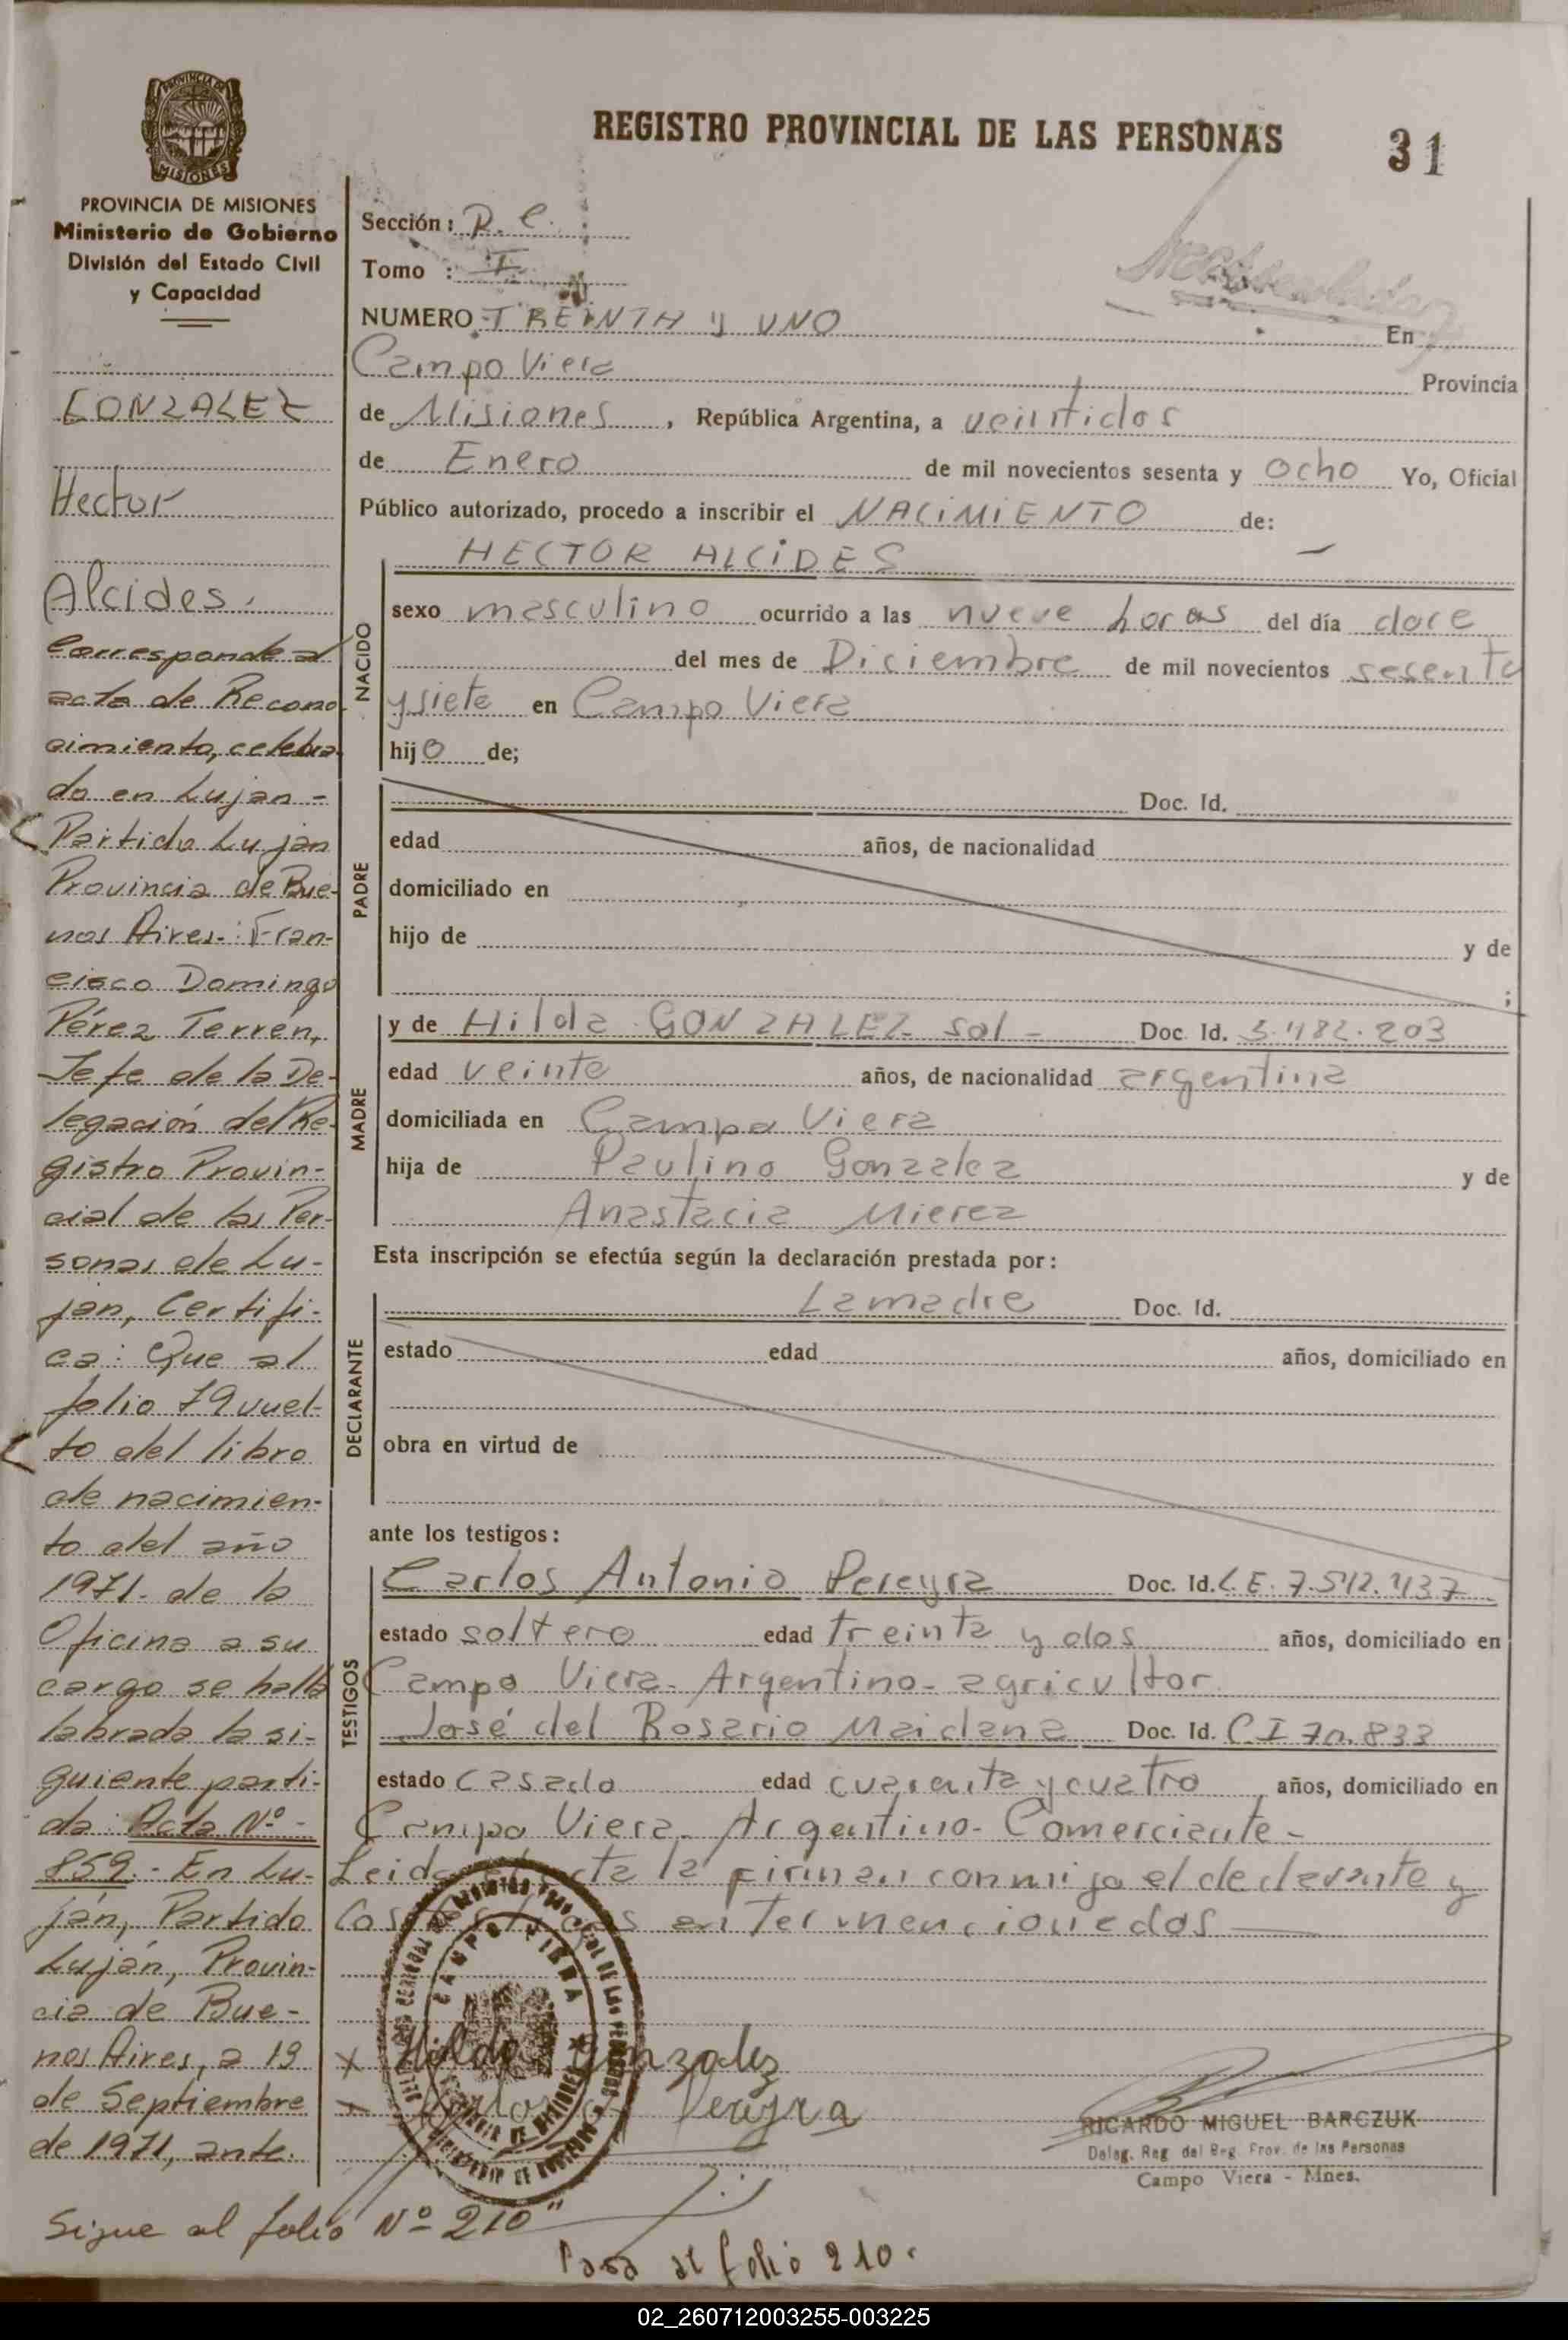 PROVINCIA DE MISIONES
Ministerio de Gobierno
División del Estado Civil
y Capacidad
GONZALEZ
Hector
Alcides.
Corresponde al
acta de Recono
cimiento, celebra-
do en Lujan -
Partido Lujan
Provincia de Bue-
nos Aires.: Fran-
cisco Domingo
Pérez Terrén,
Jefe de la De-
legación del Re-
gistro Provin-
cial de las Per-
sonas de Lu-
jan, Certifi-
ca: Que al
folio 79 vuel-
to del libro
de nacimien-
to del año
1971. de la
Oficina a su
cargo se halla
labrada la si-
guiente parti-
da: Acta Nº -
859.- En Lu-
ján, Partido
Luján, Provin-
cia de Bue-
nos Aires, a 19
de Septiembre
de 1971, ante.
Sigue al folio Nº 210"
REGISTRO PROVINCIAL DE LAS PERSONAS 31
Sección: R. C.
Tomo : I
NUMERO TREINTA y UNO En
Campo Viera Provincia
de Misiones, República Argentina, a veintidos
de Enero de mil novecientos sesenta y ocho Yo, Oficial
Público autorizado, procedo a inscribir el NACIMIENTO de:
HECTOR ALCIDES
NACIDO
sexo masculino ocurrido a las nueve horas del día doce
del mes de Diciembre de mil novecientos sesenta
y siete en Campo Viera
hijo de;
PADRE
Doc. Id.
edad años, de nacionalidad
domiciliado en
hijo de y de
;
MADRE
y de Hilda GONZALEZ sol - Doc. Id. 5.482.203
edad veinte años, de nacionalidad argentina
domiciliada en Campo Viera
hija de Paulino Gonzalez y de
Anastacia Mierez
Esta inscripción se efectúa según la declaración prestada por:
DECLARANTE
La madre Doc. Id.
estado edad años, domiciliado en
obra en virtud de
ante los testigos:
TESTIGOS
Carlos Antonio Pereyra Doc. Id. L.E. 7.542.437
estado soltero edad treinta y dos años, domiciliado en
Campo Viera - Argentino - agricultor
José del Rosario Maidana Doc. Id. C.I 70.833
estado casado edad cuarenta y cuatro años, domiciliado en
Campo Viera - Argentino - Comerciante -
Leida acta la firman conmigo el declarante y
los testigos
CAMPO VIERA
Hilda Gonzalez
Carlos A Pereyra
RICARDO MIGUEL BARCZUK
Deleg. Reg. del Reg. Prov. de las Personas
Campo Viera - Mnes.
Pasa al folio 210.
02_260712003255-003225